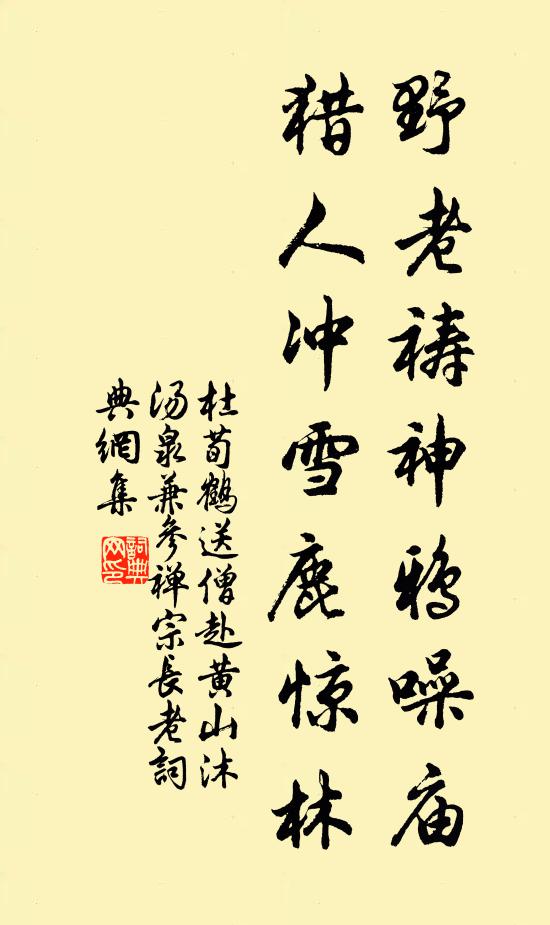 野老祷神鸦噪庙
猎人冲雪鹿惊林
杜荀鹤送僧赴黄山沐
汤泉兼参禅宗長老詞
典網集
詞典
网印